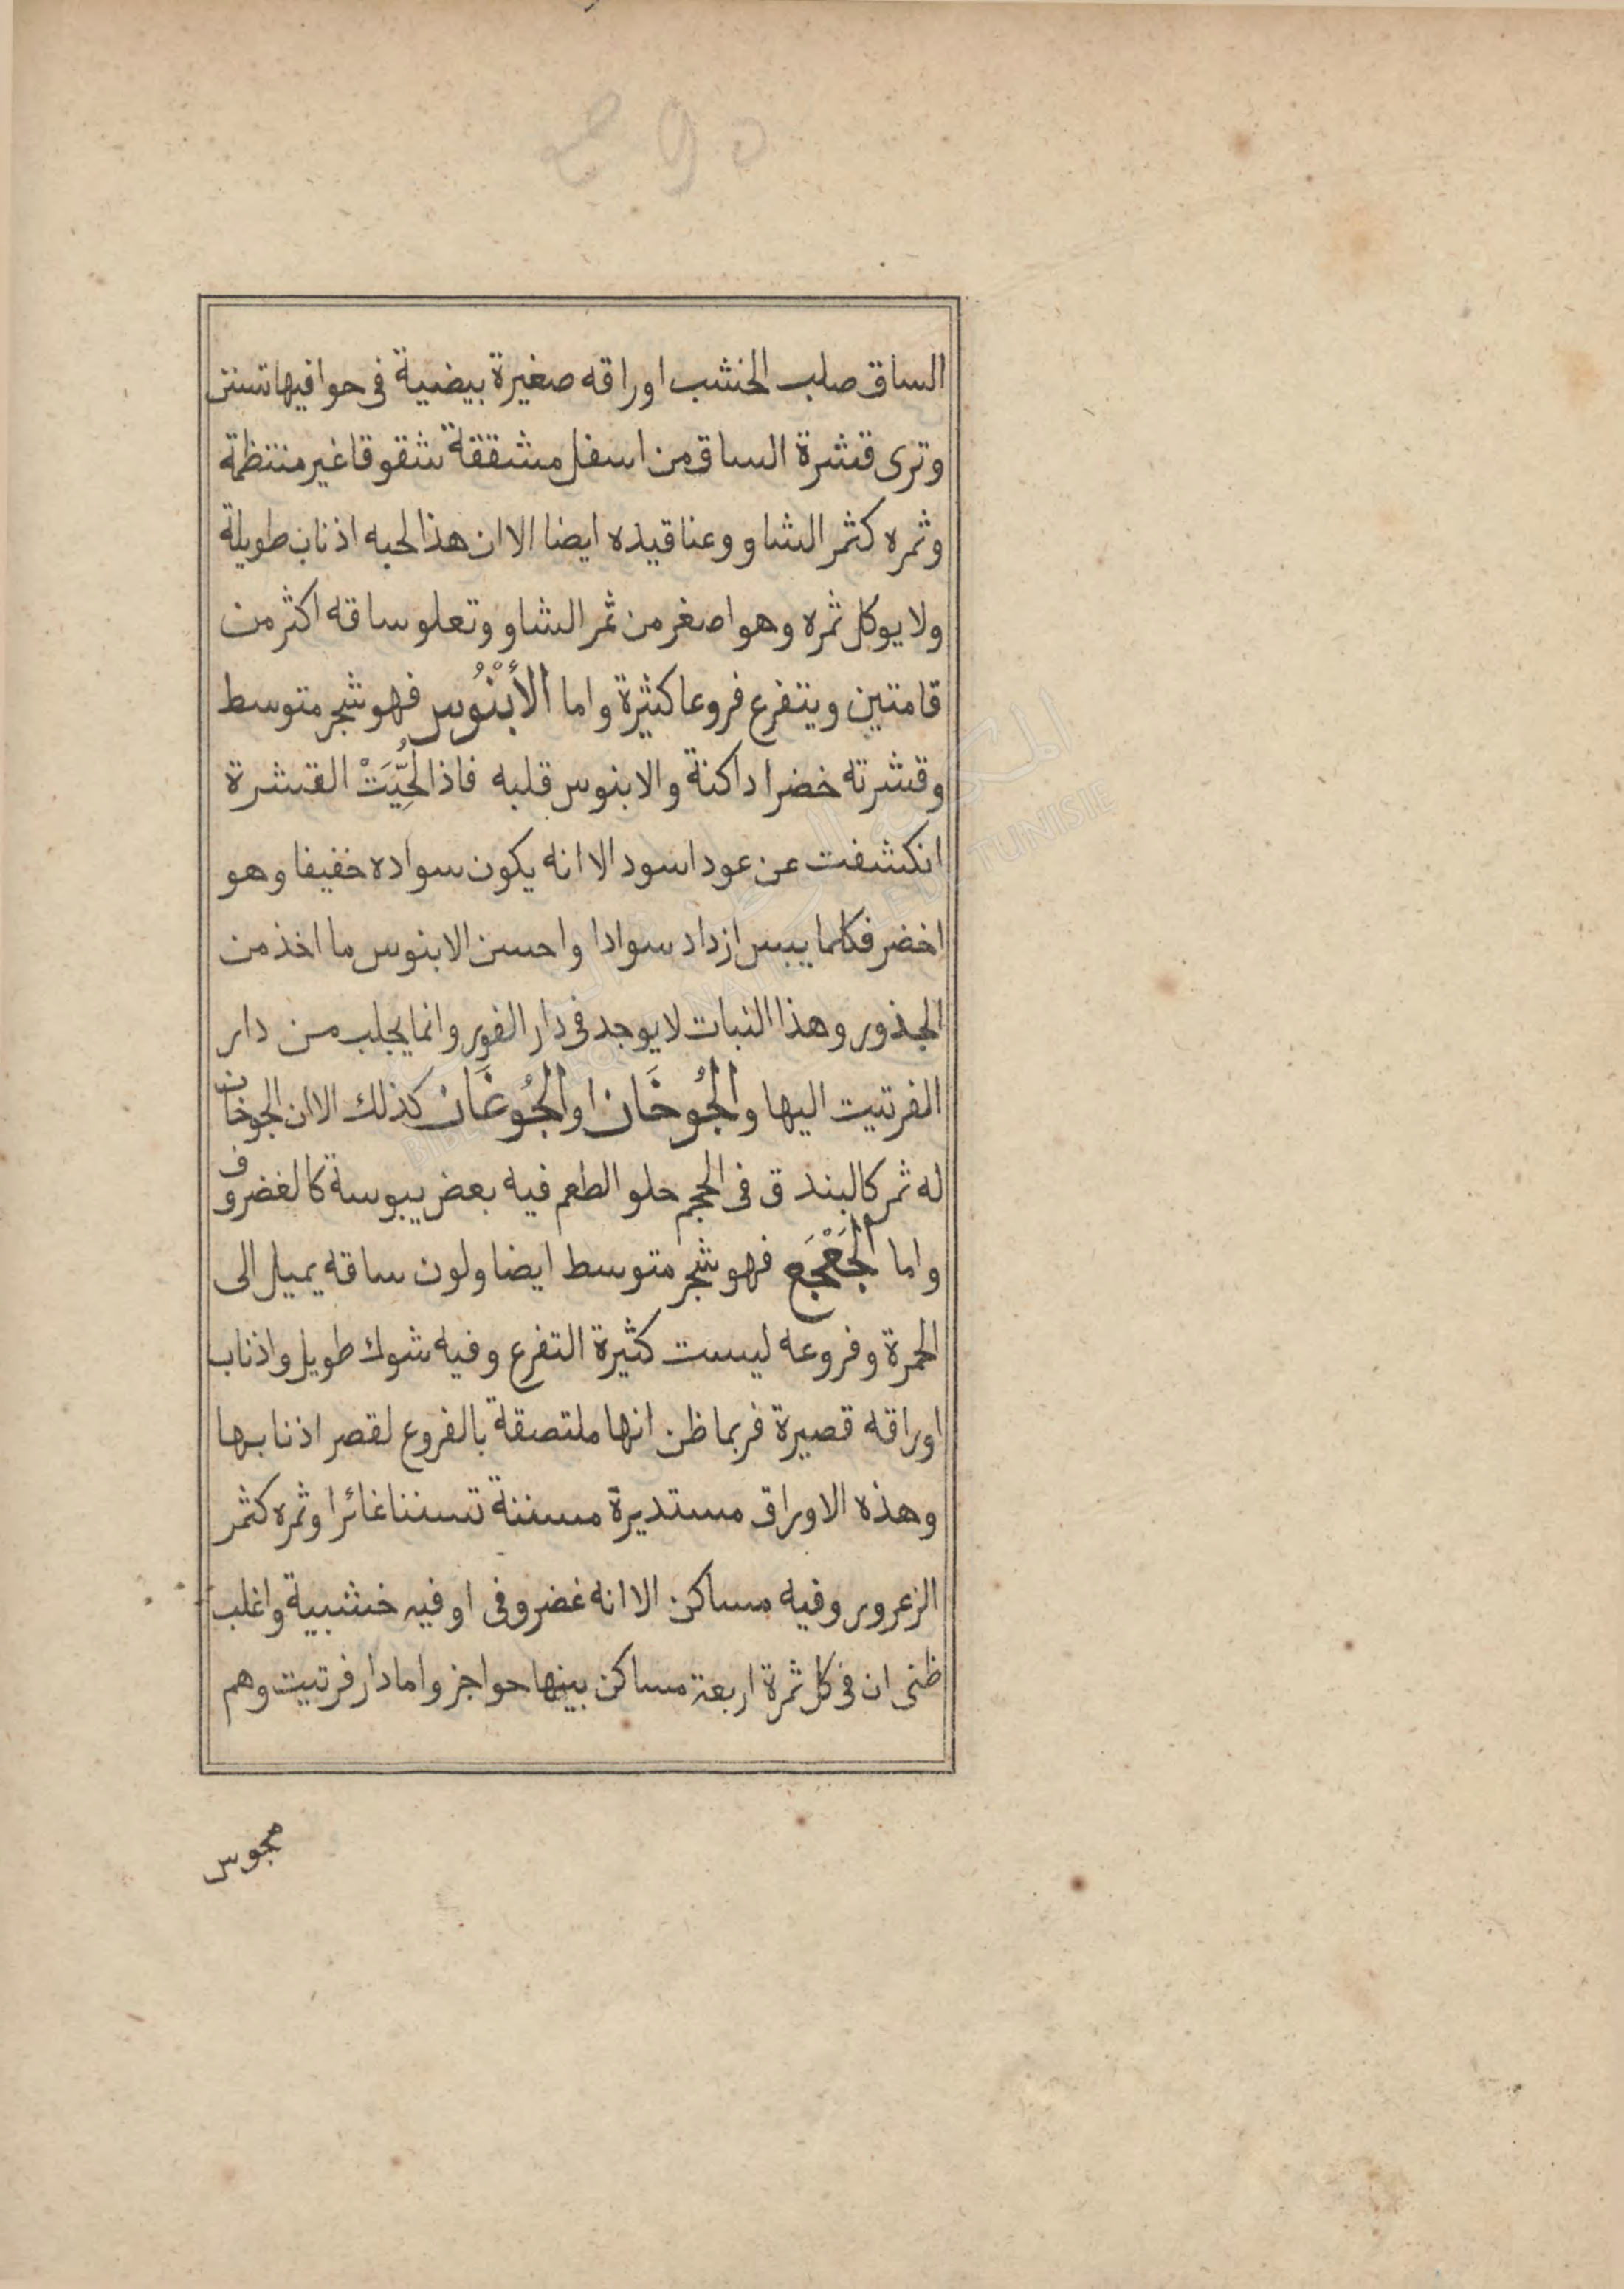 الساق صلب الخشب اوراقه صغيرة بيضية فى حوافيها تسنن
وترى قشرة الساق من اسفل مشققة شقوقا غير منتظمة
وثمره كثمر الشاو وعناقيده ايضا الا ان هذا لحبه اذناب طويلة
ولا يوكل ثمره وهو اصغر من ثمر الشاو وتعلو ساقه اكثر من
قامتين ويتفرع فروعا كثيرة واما الأَبْنُوس فهو شجر متوسط
وقشرته خضرا داكنة والابنوس قلبه فاذا لُحِّيَتْ القشرة
انكشفت عن عود اسود الا انه يكون سواده خفيفا وهو
اخضر فكلما يبس ازداد سوادا واحسن الابنوس ما اخذ من
الجذور وهذا النبات لا يوجد فى دار الفور وانما يجلب من دار
الفرتيت اليها والجُوخَان او الجُوغَان كذلك الا ان الجوخان
له ثمر كالبندق فى الحجم حلو الطعم فيه بعض يبوسة كالغضروف
واما الجَعْجَع فهو شجر متوسط ايضا ولون ساقه يميل الى
الحمرة وفروعه ليست كثيرة التفرع وفيه شوك طويل واذناب
اوراقه قصيرة فربما ظن انها ملتصقة بالفروع لقصر اذنابها
وهذه الاوراق مستديرة مسننة تسننا غائرا وثمره كثمر
الزعرور وفيه مساكن الا انه غضروفى او فيه خشبية واغلب
ظنى ان فى كل ثمرة اربعة مساكن بينها حواجز واما دار فرتيت وهم
مجوس